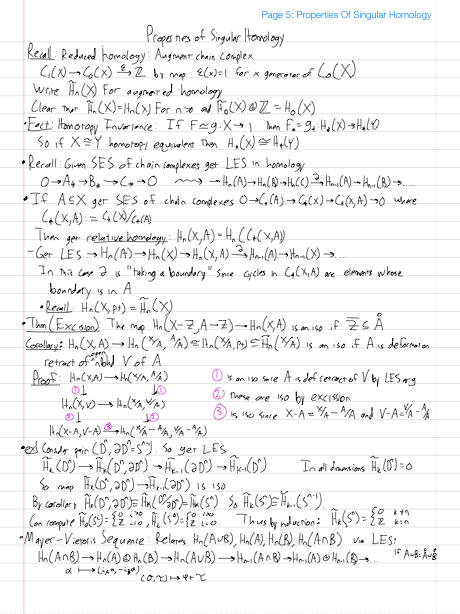 Page 5: Properties Of Singular Homology
Properties of Singular Homology
Recall: Reduced homology: Augment chain complex
C₁(X) → C₀(X) →^ε ℤ by map ε(x)=1 for x generator of C₀(X)
Write H̃ₙ(X) for augmented homology
Clear that H̃ₙ(X)=Hₙ(X) for n>0 and H̃₀(X)⊕ℤ = H₀(X)
• Fact: Homotopy Invariance: If F≃g: X→Y then F_* = g_*: H_*(X)→H_*(Y)
So if X≅Y homotopy equivalent then H_*(X)≅H_*(Y)
• Recall: Given SES of chain complexes get LES in homology
0→A_*→B_*→C_*→0 ⇝ …→Hₙ(A)→Hₙ(B)→Hₙ(C)→^∂ Hₙ₋₁(A)→Hₙ₋₁(B)→…
• If A⊆X get SES of chain complexes 0→C_*(A)→C_*(X)→C_*(X,A)→0 where
C_*(X,A) := C_*(X)/C_*(A)
Then get relative homology: Hₙ(X,A) = Hₙ(C_*(X,A))
- Get LES →Hₙ(A)→Hₙ(X)→Hₙ(X,A)→^∂ Hₙ₋₁(A)→Hₙ₋₁(X)→…
In this case ∂ is "taking a boundary" since cycles in C_*(X,A) are elements whose
boundary is in A
• Recall: Hₙ(X,pt) = H̃ₙ(X)
• Thm (Excision): The map Hₙ(X−Z,A−Z)→Hₙ(X,A) is an iso if Z̄ ⊆ Å
Corollary: Hₙ(X,A)→Hₙ(X/A, A/A)≅Hₙ(X/A,pt)≅H̃ₙ(X/A) is an iso if A is deformation
retract of open nbhd V of A
Proof: Hₙ(X,A)→Hₙ(X/A, A/A)
① ↓ ↓ ①
Hₙ(X,V)→Hₙ(X/A, V/A)
② ↑ ↑ ②
Hₙ(X−A,V−A) →^③ Hₙ(X/A − A/A, V/A − A/A)
① is an iso since A is def retract of V by LES arg
② these are iso by excision
③ is iso since X−A = X/A − A/A and V−A = V/A − A/A
• ex) Consider pair (Dⁿ, ∂Dⁿ=Sⁿ⁻¹). So get LES
H̃ₖ(Dⁿ)→H̃ₖ(Dⁿ,∂Dⁿ)→H̃ₖ₋₁(∂Dⁿ)→H̃ₖ₋₁(Dⁿ) In all dimensions H̃ₖ(Dⁿ)=0
So map H̃ₖ(Dⁿ,∂Dⁿ)→H̃ₖ₋₁(∂Dⁿ) is iso
By corollary H̃ₖ(Dⁿ,∂Dⁿ)≅H̃ₖ(Dⁿ/∂Dⁿ)≅H̃ₖ(Sⁿ) So H̃ₖ(Sⁿ)≅H̃ₖ₋₁(Sⁿ⁻¹)
Can compute Thus by induction: H̃ₖ(Sⁿ)={0 k≠n, ℤ k=n
• Mayer-Vietoris Sequence: Relates Hₙ(A∪B), Hₙ(A), Hₙ(B), Hₙ(A∩B) via LES:
Hₙ(A∩B)→Hₙ(A)⊕Hₙ(B)→Hₙ(A∪B)→Hₙ₋₁(A∩B)→Hₙ₋₁(A)⊕Hₙ₋₁(B)→…
(σ,τ)↦σ+τ